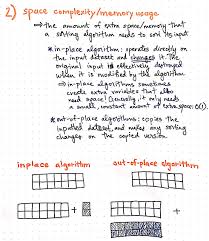 2) space complexity/memory usage
⇒ the amount of extra space/memory that
a sorting algorithm needs to sort its input
* in-place algorithm: operates directly on
the input dataset and changes it. The
original input is effectively destroyed
when it is modified by the algorithm
⇒ in-place algorithms sometimes
create extra variables that also
need space! Generally, it only needs
a small, constant amount of extra space: O(1).
* out-of-place algorithms: copies the
inputted dataset, and makes any sorting
changes on the copied version.
inplace algorithm
out-of-place algorithm
+
+